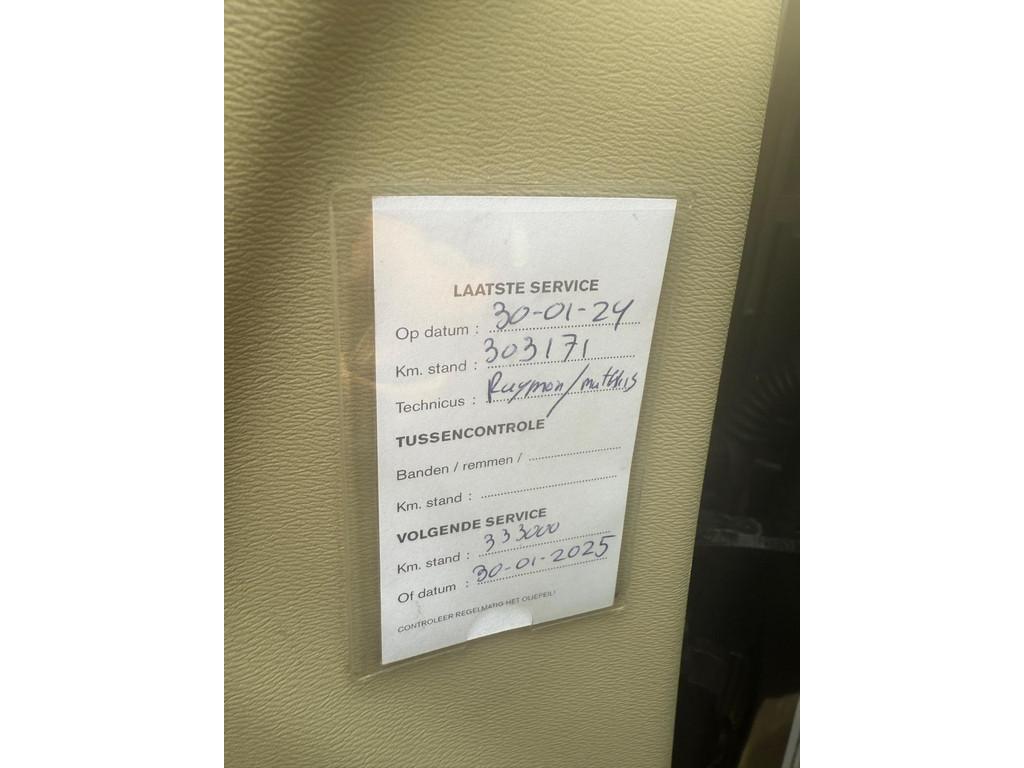 LAATSTE SERVICE
Op datum : 30-01-24
Km. stand : 303171
Technicus : Raymon / mathhis
TUSSENCONTROLE
Banden / remmen /
Km. stand :
VOLGENDE SERVICE
Km. stand : 333000
Of datum : 30-01-2025
CONTROLEER REGELMATIG HET OLIEPEIL!